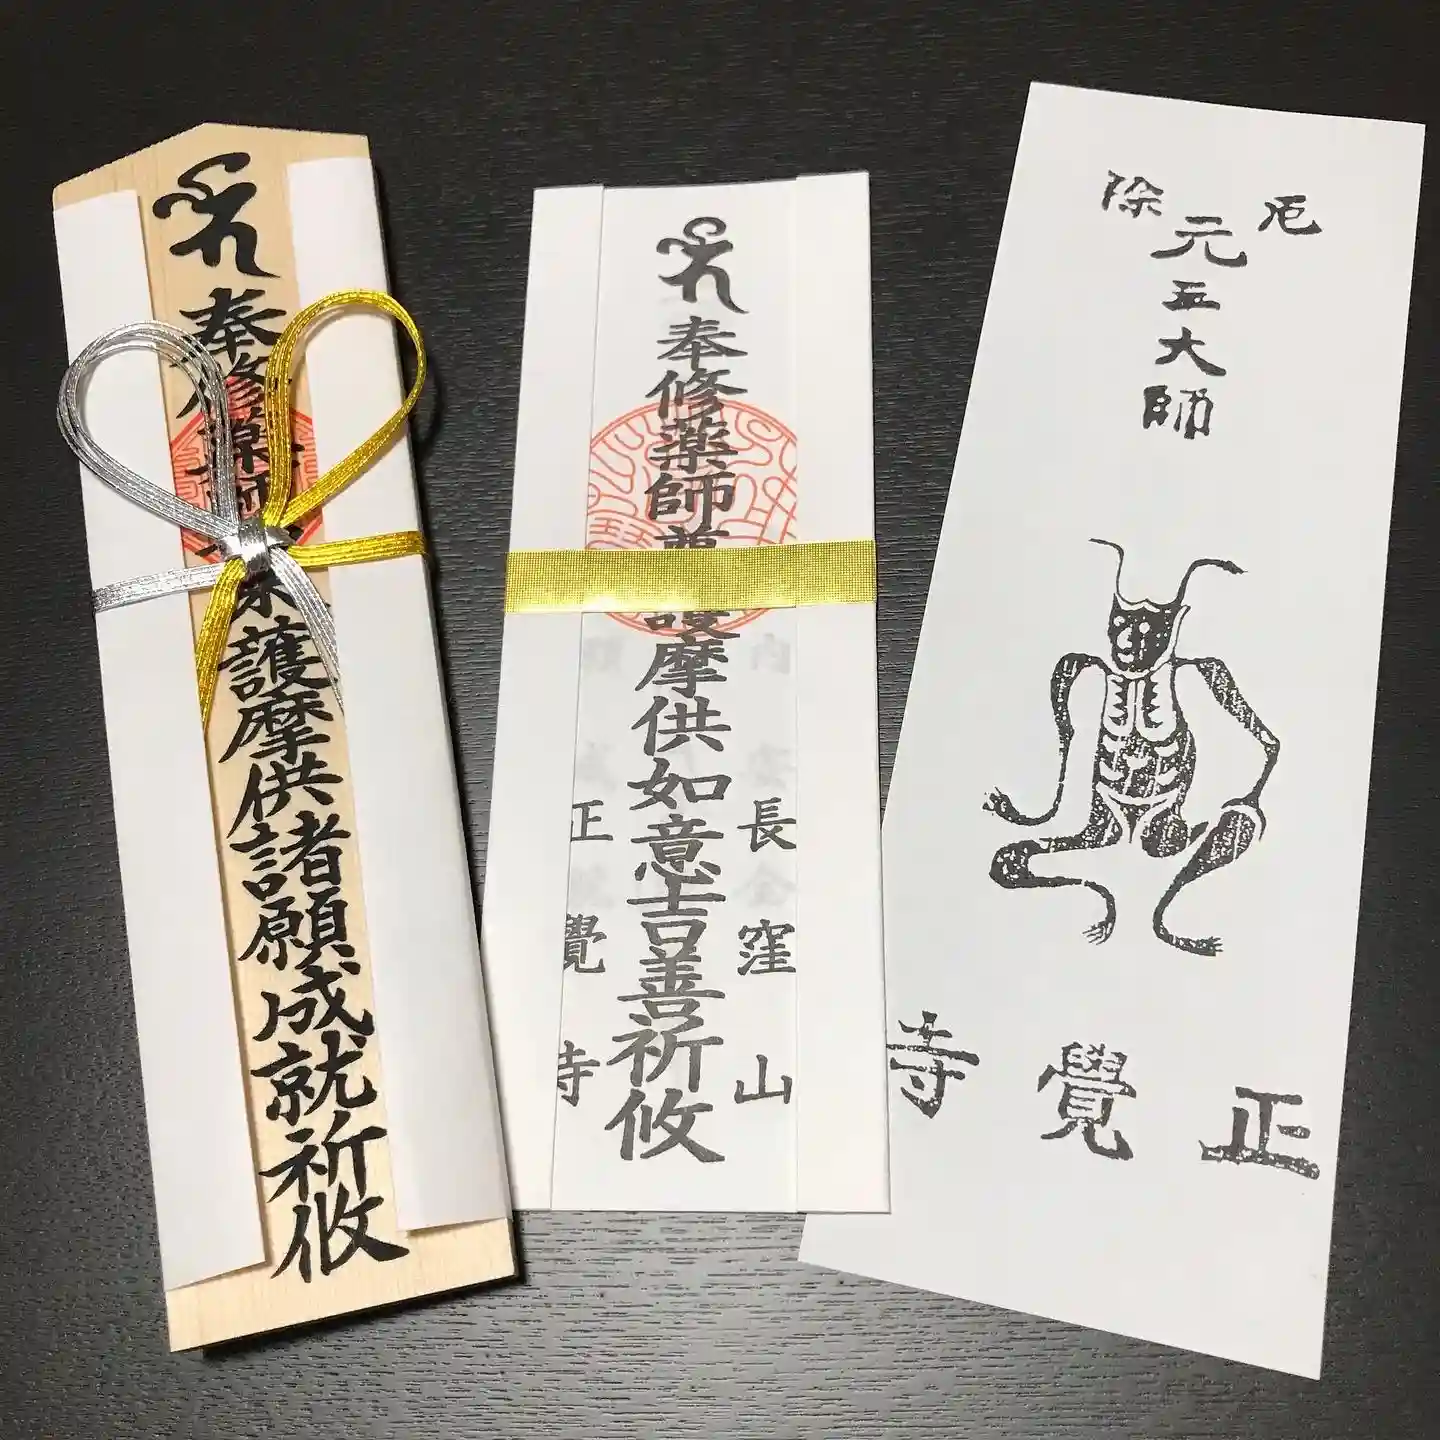 奉修薬師
護摩供諸願成就祈攸
奉修薬師
護摩供如意吉善祈攸
長窪山
正覺寺
厄除
元三大師
正覺寺